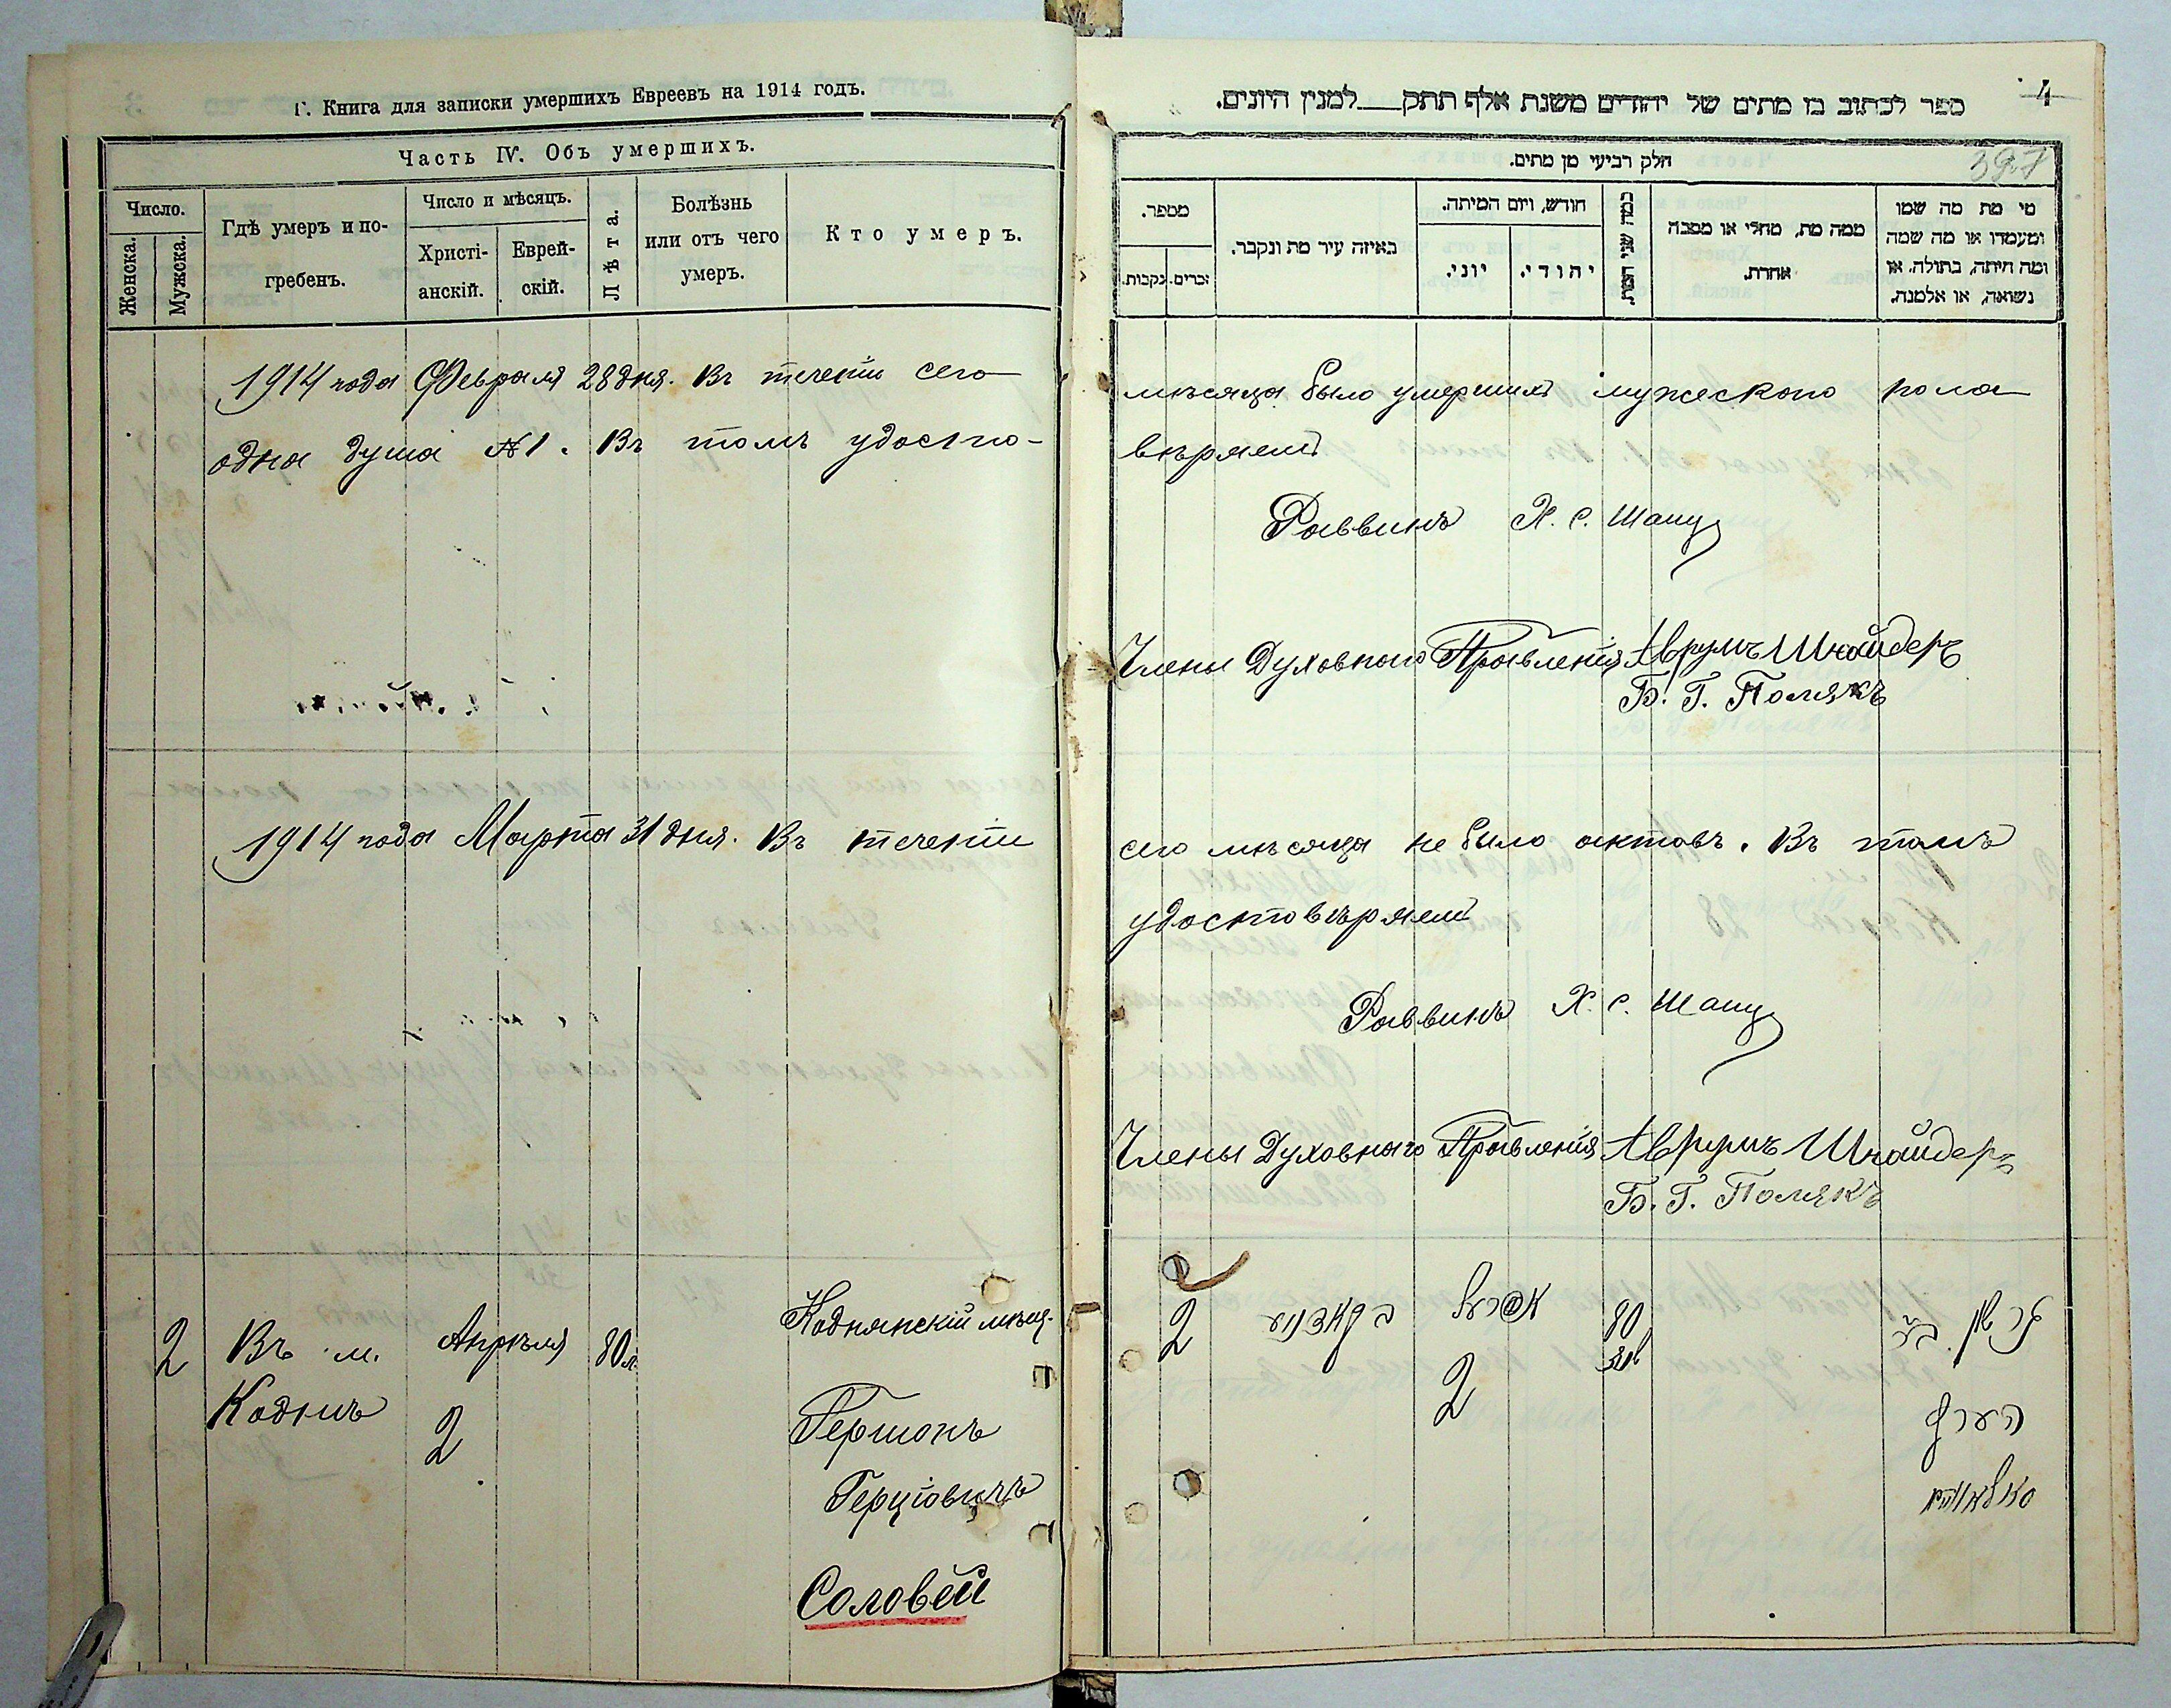 Г. Книга для записки умершихъ Евреевъ на 1914 годъ.
Часть IV. Объ умершихъ.
Число.
Женска.
Мужска.
Гдѣ умеръ и по-
гребенъ.
Число и мѣсяцъ.
Христі-
анскій.
Еврей-
скій.
Лѣта.
Болѣзнь
или отъ чего
умеръ.
Кто умеръ.
1914 года Февраля 28 дня. Въ теченіи сего
одна душа №1. Въ томъ удосто-
1914 года Марта 31 дня. Въ теченіи
2 Въ м. Апрѣля 80 л. Коднянскій мѣщ.
Кодни 2 Гершонъ
Герціовичъ
Соловей
4
ספר לכתוב בו מתים של יהודים משנת אלף תתק__למנין היונים.
397
חלק רביעי מן מתים.
מספר.
זכרים.
נקבות.
באיזה עיר מת ונקבר.
חודש, ויום המיתה.
יוני.
יהודי.
כמה שני המת.
ממה מת, מחלי או מסבה
אחרת.
מי מת מה שמו
ומעמדו או מה שמה
ומה היתה, בתולה, או
נשואה, או אלמנה.
мѣсяца было умершихъ мужескаго пола
вѣряемъ
Раввинъ Х. С. Шапц
Члены Духовнаго Правленія Аврумъ Шнайдеръ
Б. Г. Полякъ
сего мѣсяца не было актовъ. Въ томъ
удостовѣряемъ
Раввинъ Х. С. Шапц
Члены Духовнаго Правленія Аврумъ Шнайдеръ
Б. Г. Полякъ
2 80
2